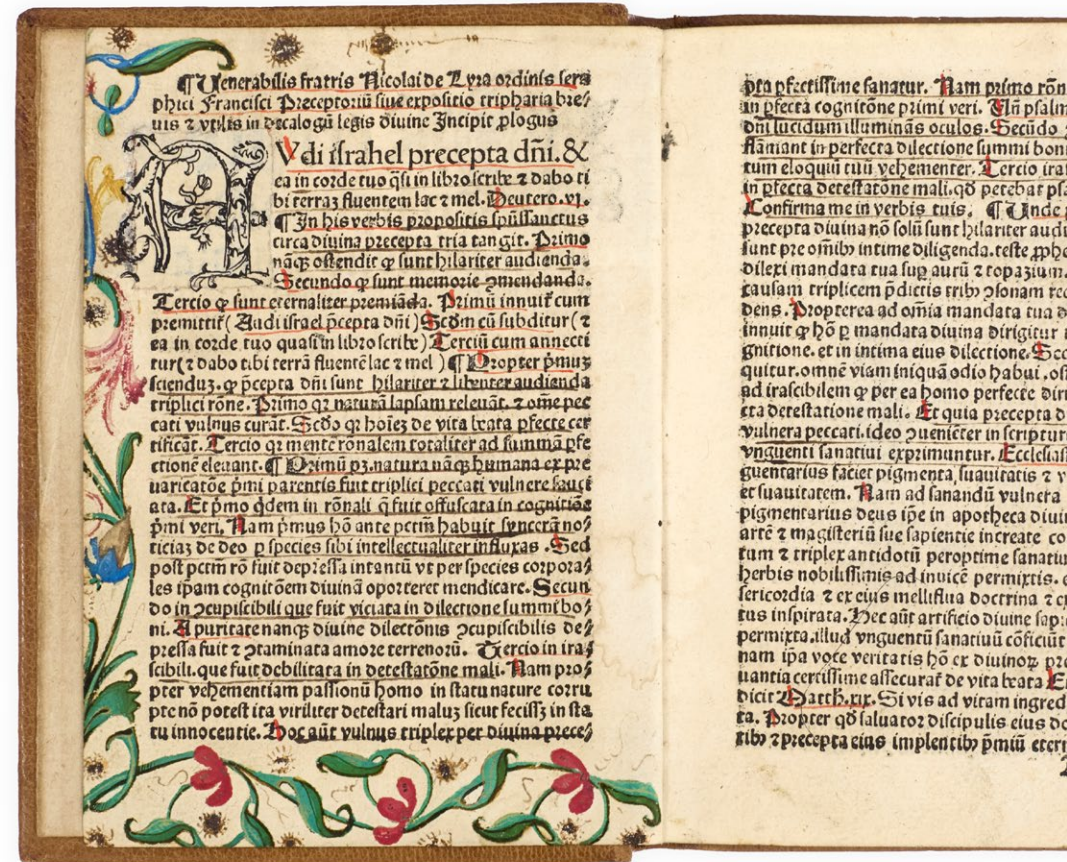 ¶ Uenerabilis fratris Nicolai de Lyra ordinis sera
phici Francisci Preceptoriū siue expositio tripharia bre⸗
uis ⁊ vtilis in decalogū legis diuine Incipit ꝓlogus
AVdi israhel precepta dñi. &
ea in corde tuo q̄si in libro scribe ⁊ dabo ti
bi terraꝫ fluentem lac ⁊ mel. Deutero. vi.
¶ In his verbis propositis spūssanctus
circa diuina precepta tria tangit. Primo
nāqꝫ ostendit ꝙ sunt hilariter audienda.
Secundo ꝙ sunt memorie ꝯmendanda.
Tercio ꝙ sunt eternaliter premiāda. Primū innuit̄ cum
premittit̄ ( Audi israel p̄cepta dñi ) Scd̄m cū subditur ( ⁊
ea in corde tuo quasi in libro scribe ) Terciū cum annecti
tur ( ⁊ dabo tibi terrā fluentē lac ⁊ mel ) ¶ Propter p̄muꝫ
scienduꝫ. ꝙ p̄cepta dñi sunt hilariter ⁊ libenter audienda
triplici rōne. Primo qꝛ naturā lapsam releuāt. ⁊ om̄e pec
cati vulnus curāt. Scd̄o qꝛ hoīeꝫ de vita beata ꝑfecte cer
tificāt. Tercio qꝛ mentē rōnalem totaliter ad summā ꝑfe
ctionē eleuant. ¶ Primū pꝫ. natura nāqꝫ humana ex pre
uaricatōe p̄mi parentis fuit triplici peccati vulnere sauci
ata. Et p̄mo q̇dem in rōnali q̄ fuit offuscata in cognitiōe
p̄mi veri. Nam p̄mus hō ante pctm̄ habuit syncerā no⸗
ticiaꝫ de deo ꝑ species sibi intellectualiter influxas. Sed
post pctm̄ rō fuit depressa intantū vt per species corpora⸗
les ip̄am cognitōem diuinā oporteret mendicare. Secun
do in ꝯcupiscibili que fuit viciata in dilectione summi bo⸗
ni. A puritate nanqꝫ diuine dilectōnis ꝯcupiscibilis de⸗
pressa fuit ⁊ ꝯtaminata amore terrenorū. Tercio in ira⸗
scibili. que fuit debilitata in detestatōne mali. Nam pro⸗
pter vehementiam passionū homo in statu nature corru
pte nō potest ita viriliter detestari maluꝫ sicut fecissꝫ in sta
tu innocentie. Hoc aūt vulnus triplex per diuina prece⸗
pta ꝑfectissime sanatur. Nam primo rōn
in ꝑfecta cognitōne primi veri. Vn̄ psalm
dñi lucidum illuminās oculos. Secūdo
flāmant in perfecta dilectione summi boni
tum eloquiū tuū vehementer. Tercio ira
in ꝑfecta detestatōne mali. qd̄ petebat psa
Confirma me in verbis tuis. ¶ Unde p
precepta diuina nō solū sunt hilariter audi
sunt pre om̄ibꝫ intime diligenda. teste ꝓphe
dilexi mandata tua suꝑ aurū ⁊ topazium.
causam triplicem p̄dictis tribꝫ ꝯsonam red
dens. Propterea ad om̄ia mandata tua d
innuit ꝙ hō ꝑ mandata diuina dirigitur
gnitione. et in intima eius dilectione. Sec
quitur. omnē viam iniquā odio habui. os
ad irascibilem ꝙ per ea homo perfecte diri
cta detestatione mali. Et quia precepta d
vulnera peccati. ideo ꝯueniēter in scriptur
vnguenti sanatiui exprimuntur. Ecclesias
guentarius faciet pigmenta, suauitatis ⁊ v
et suauitatem. Nam ad sanandū vulnera
pigmentarius deus ip̄e in apotheca diui
artē ⁊ magisteriū sue sapientie increate co
tum ⁊ triplex antidotū peroptime sanatiu
herbis nobilissimis ad inuicē permixtis.
sericordia ⁊ ex eius melliflua doctrina ⁊ e
tus inspirata. Hec aūt artificio diuine sapi
permixta. illud vnguentū sanatiuū cōficiūt
nam ip̄a voce veritatis hō ex diuinoꝝ pre
uantia certissime assecurat̄ de vita beata
dicit Matth. xix. Si vis ad vitam ingred
ta. Propter qd̄ saluator discipulis eius do
tibꝫ ⁊ precepta eius implentibꝫ p̄miū etern